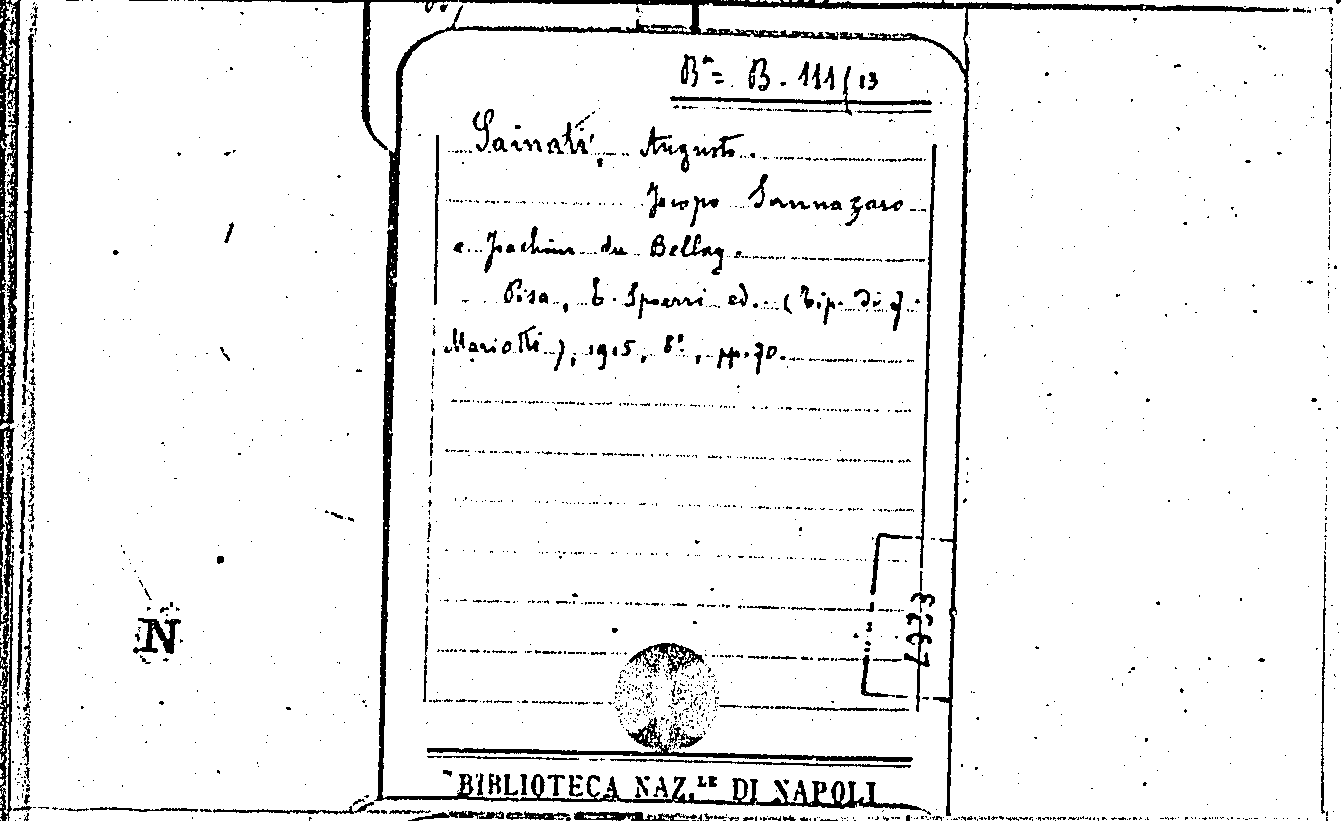 Bª= B. 111/13
Sainati, Augusto.
Jacopo Sannazaro
e Joachim du Bellay.
Pisa, E. Spoerri ed. (Tip. di F.
Mariotti), 1915, 8°, pp. 70.
N
BIBLIOTECA NAZ.LE DI NAPOLI